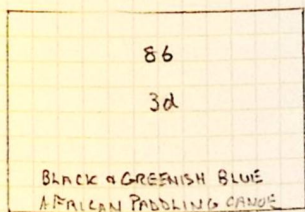 86
3d
BLACK & GREENISH BLUE
AFRICAN PADDLING CANOE